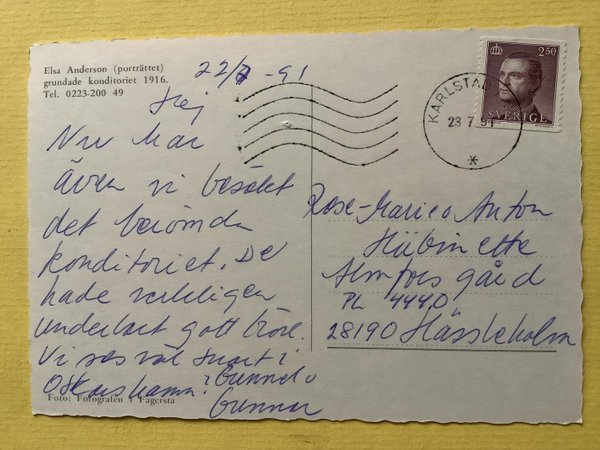 Elsa Anderson (porträttet)
grundade konditoriet 1916.
Tel. 0223-200 49
22/7 -91
Hej
Nu har
även vi besökt
det berömda
konditoriet. De
hade verkligen
underbart gott bröd.
Vi ses väl snart i
Oskarshamn? Gunnel o
Gunnar
Foto: Fotografen i Fagersta
2.50
SVERIGE
KARLSTAD
23 7 91
Rose-Marie o Anton
Hübinette
Almfors gård
PL 4440
28190 Hässleholm